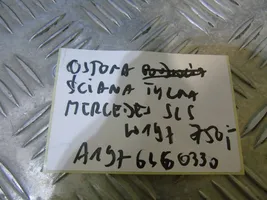 OSŁONA
ŚCIANA TYLNA
MERCEDES SLS
W197 750,-
A1976960330